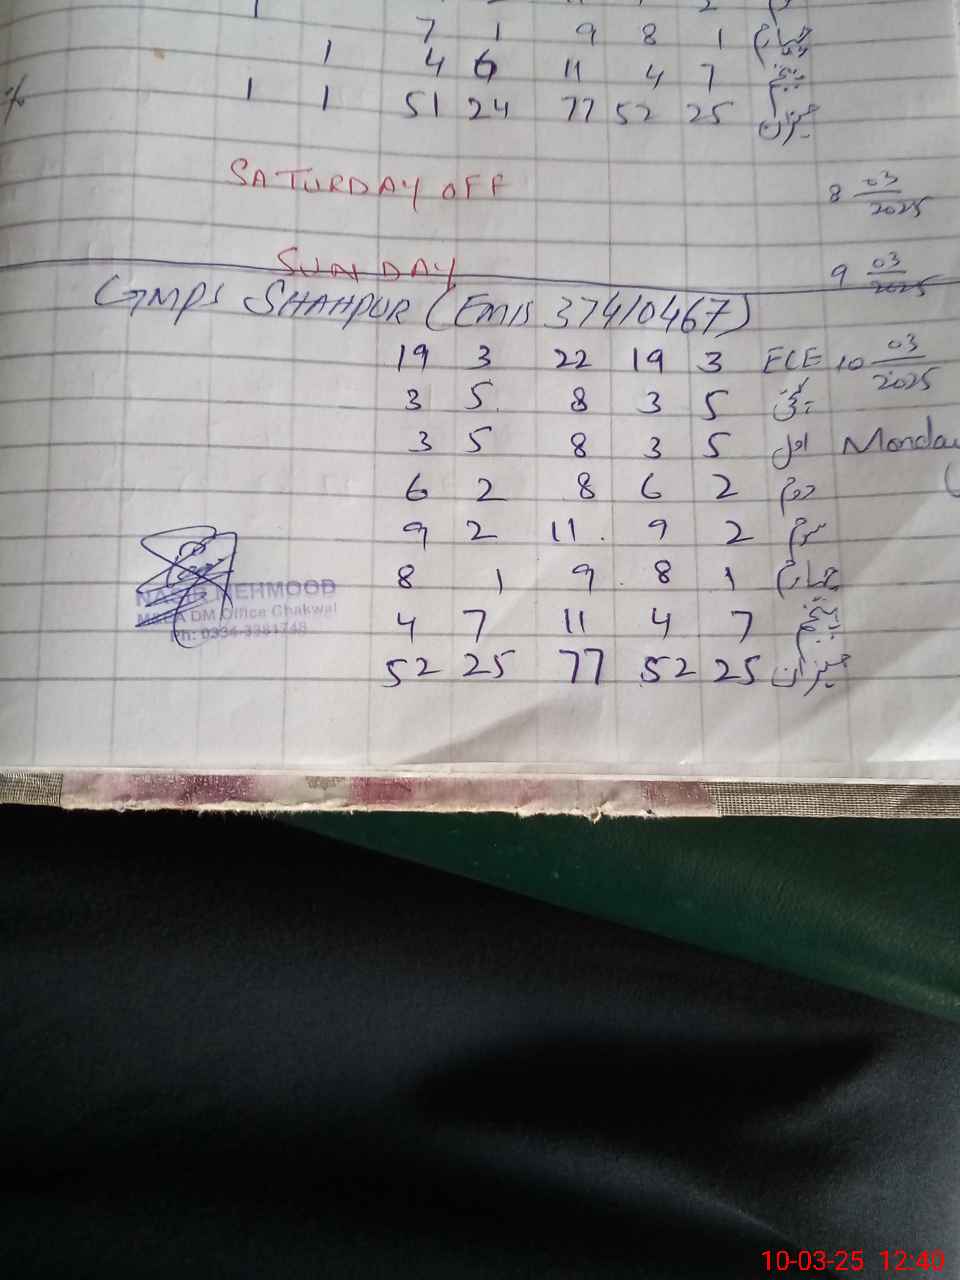 7 1 9 8 1 چہارم
1 4 6 11 4 7 پنجم
1 1 51 24 77 52 25 میزان
SATURDAY OFF 8 03/2025
SUNDAY 9 03/2025
GMPS SHAHPUR (EMIS 37410467)
19 3 22 19 3 ECE 10 03/2025
3 5 8 3 5
3 5 8 3 5 اول Monday
6 2 8 6 2 دوم
9 2 11 9 2 سوم
8 1 9 8 1 چہارم
4 7 11 4 7 پنجم
52 25 77 52 25 میزان
NASIR MEHMOOD
MEA DM Office Chakwal
Ph: 0334-
10-03-25 12:40